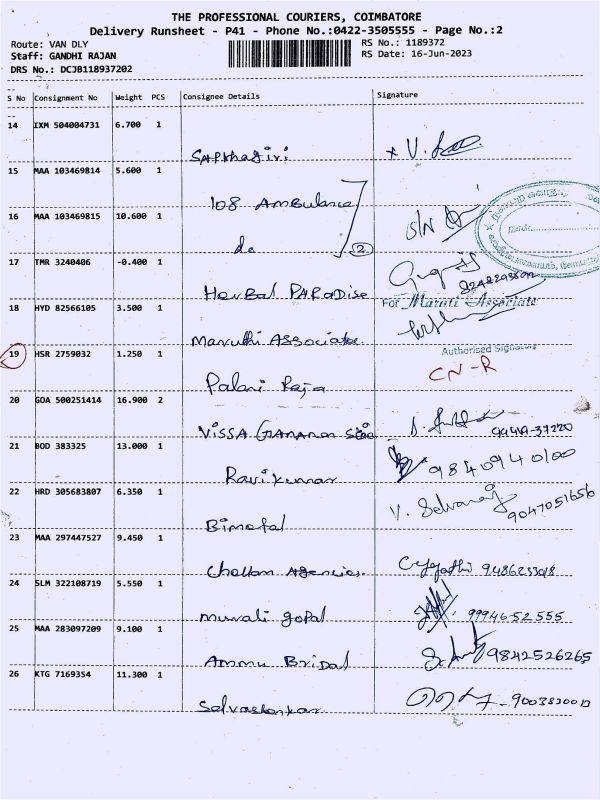 THE PROFESSIONAL COURIERS, COIMBATORE
Delivery Runsheet - P41 - Phone No.:0422-3505555 - Page No.:2
Route: VAN DLY
Staff: GANDHI RAJAN
DRS No.: DCJB118937202
RS No.: 1189372
RS Date: 16-Jun-2023
S No Consignment No Weight PCS Consignee Details Signature
14 IXM 504004731 6.700 1
Sapthagiri
15 MAA 103469814 5.600 1
108 Ambulance
16 MAA 103469815 10.600 1
do 2
S/N
17 TMR 3240406 -0.400 1
Herbal PARADise
18 HYD 82566105 3.500 1
For Maruti Associate
Maruthi Associate
Authorised Signatory
19 HSR 2759032 1.250 1
CN-R
Palani Raja
20 GOA 500251414 16.900 2
VISSA
94419-37220
21 BOD 383325 13.000 1
Ravikumar
9840940100
22 HRD 305683807 6.350 1
V. Selvaraj
9047051656
23 MAA 297447527 9.450 1
Chellam Agencies
24 SLM 322108719 5.550 1
murali gopal
99946-52555
25 MAA 283097209 9.100 1
Ammu Bridal
9842526265
26 KTG 7169354 11.300 1
Selvasankar